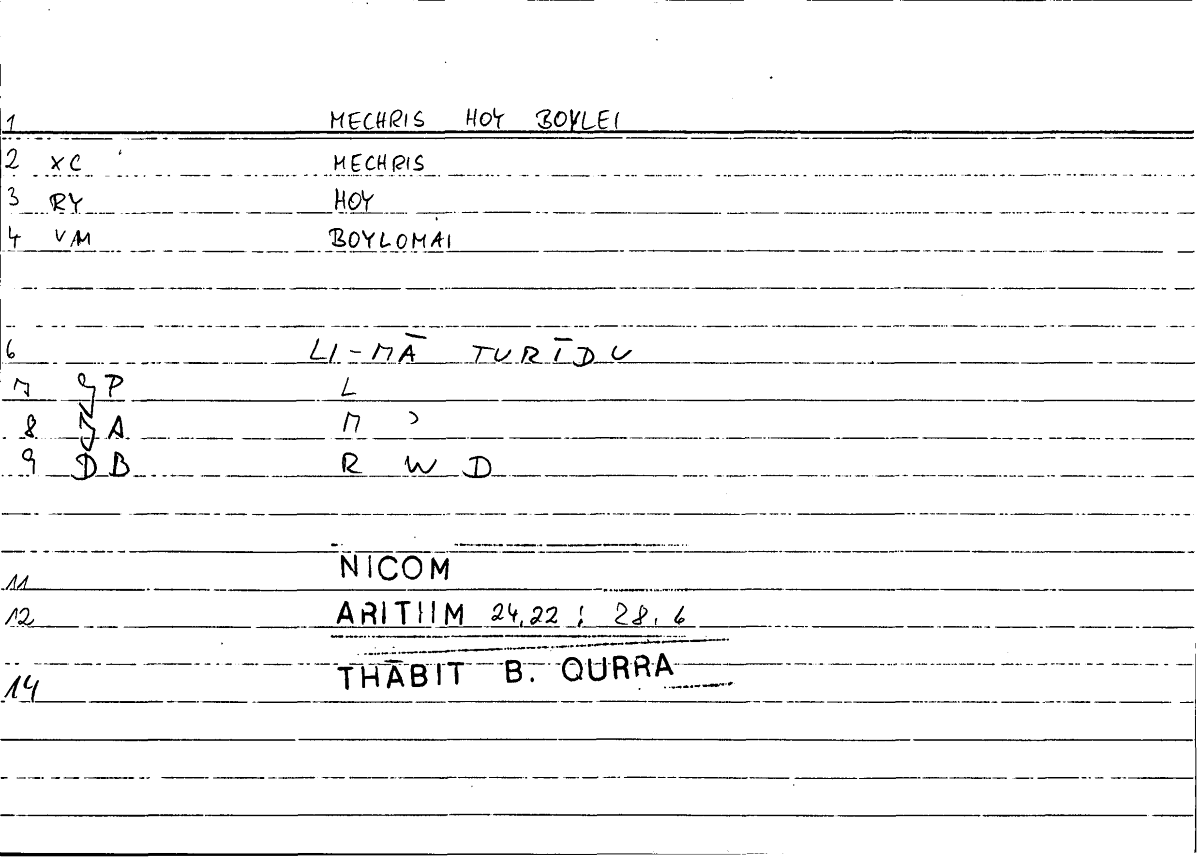 1 MECHRIS HOY BOYLEI
2 XC MECHRIS
3 RY HOY
4 VM BOYLOMAI
6 LI-MĀ TURĪDU
7 GP L
8 A M ʾ
9 DB R W D
11 NICOM
12 ARITHM 24,22 ; 28,6
14 THĀBIT B. QURRA